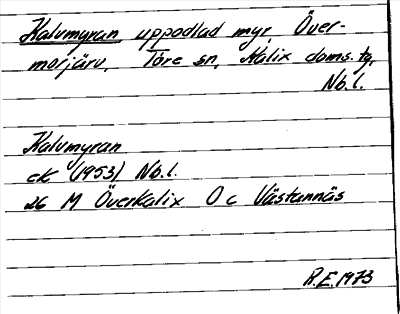 Kalvmyran uppodlad myr, Över-
morjärv, Töre sn, Kalix doms.tg,
Nb.l.
Kalvmyran
ek (1953) Nb.l.
26 M Överkalix O c Västannäs
R.E.1973